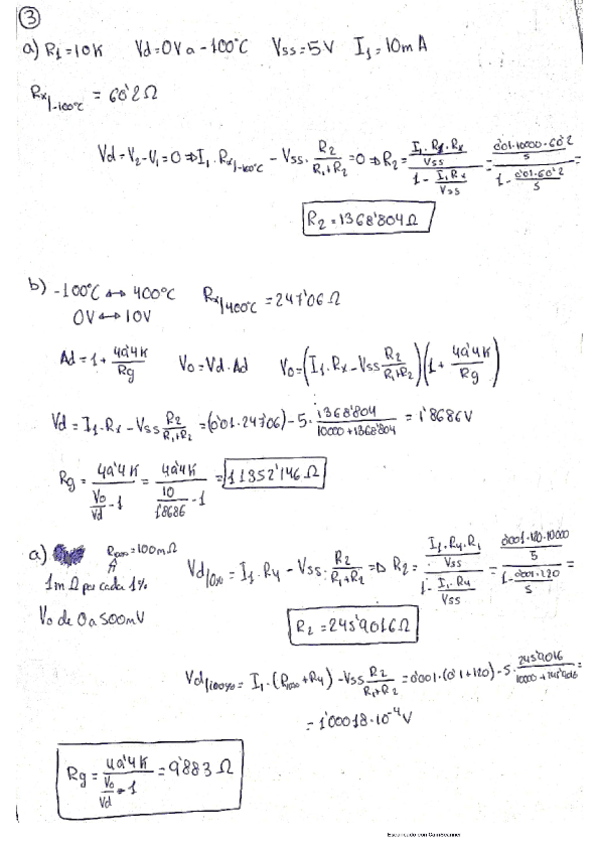 3
a) R1=10K Vd=0V a -100°C Vss=5V I1=10mA
Rx|-100°C = 60'2Ω
Vd=V2-V1=0 ⇒ I1·Rx|-100°C - Vss·R2/(R1+R2) =0 ⇒ R2= (I1·R1·Rx/Vss)/(1-I1·Rx/Vss) = (0'01·10000·60'2/5)/(1-0'01·60'2/5) =
R2=1368'804Ω
b) -100°C ↔ 400°C Rx|400°C = 247'06Ω
0V ↔ 10V
Ad=1+49'4K/Rg Vo=Vd·Ad Vo=(I1·Rx-Vss R2/(R1+R2))(1+49'4K/Rg)
Vd=I1·Rx-Vss R2/(R1+R2) =(0'01·247'06)-5·1368'804/(10000+1368'804) = 1'8686V
Rg= 49'4K/(Vo/Vd-1) = 49'4K/(10/1'8686-1) = 11352'146Ω
a) R100%=100mΩ
1mΩ per cada 1%
Vo de 0 a 500mV
Vd|0% = I1·R4 - Vss·R2/(R1+R2) ⇒ R2= (I1·R4·R1/Vss)/(1-I1·R4/Vss) = (0'001·120·10000/5)/(1-0'001·120/5) =
R2=245'9016Ω
Vd|100% = I1·(R100+R4)-Vss R2/(R1+R2) =0'001·(0'1+120)-5·245'9016/(10000+245'9016) =
= 1'00018·10⁻⁴V
Rg= 49'4K/(Vo/Vd-1) =9'883Ω
Escaneado con CamScanner